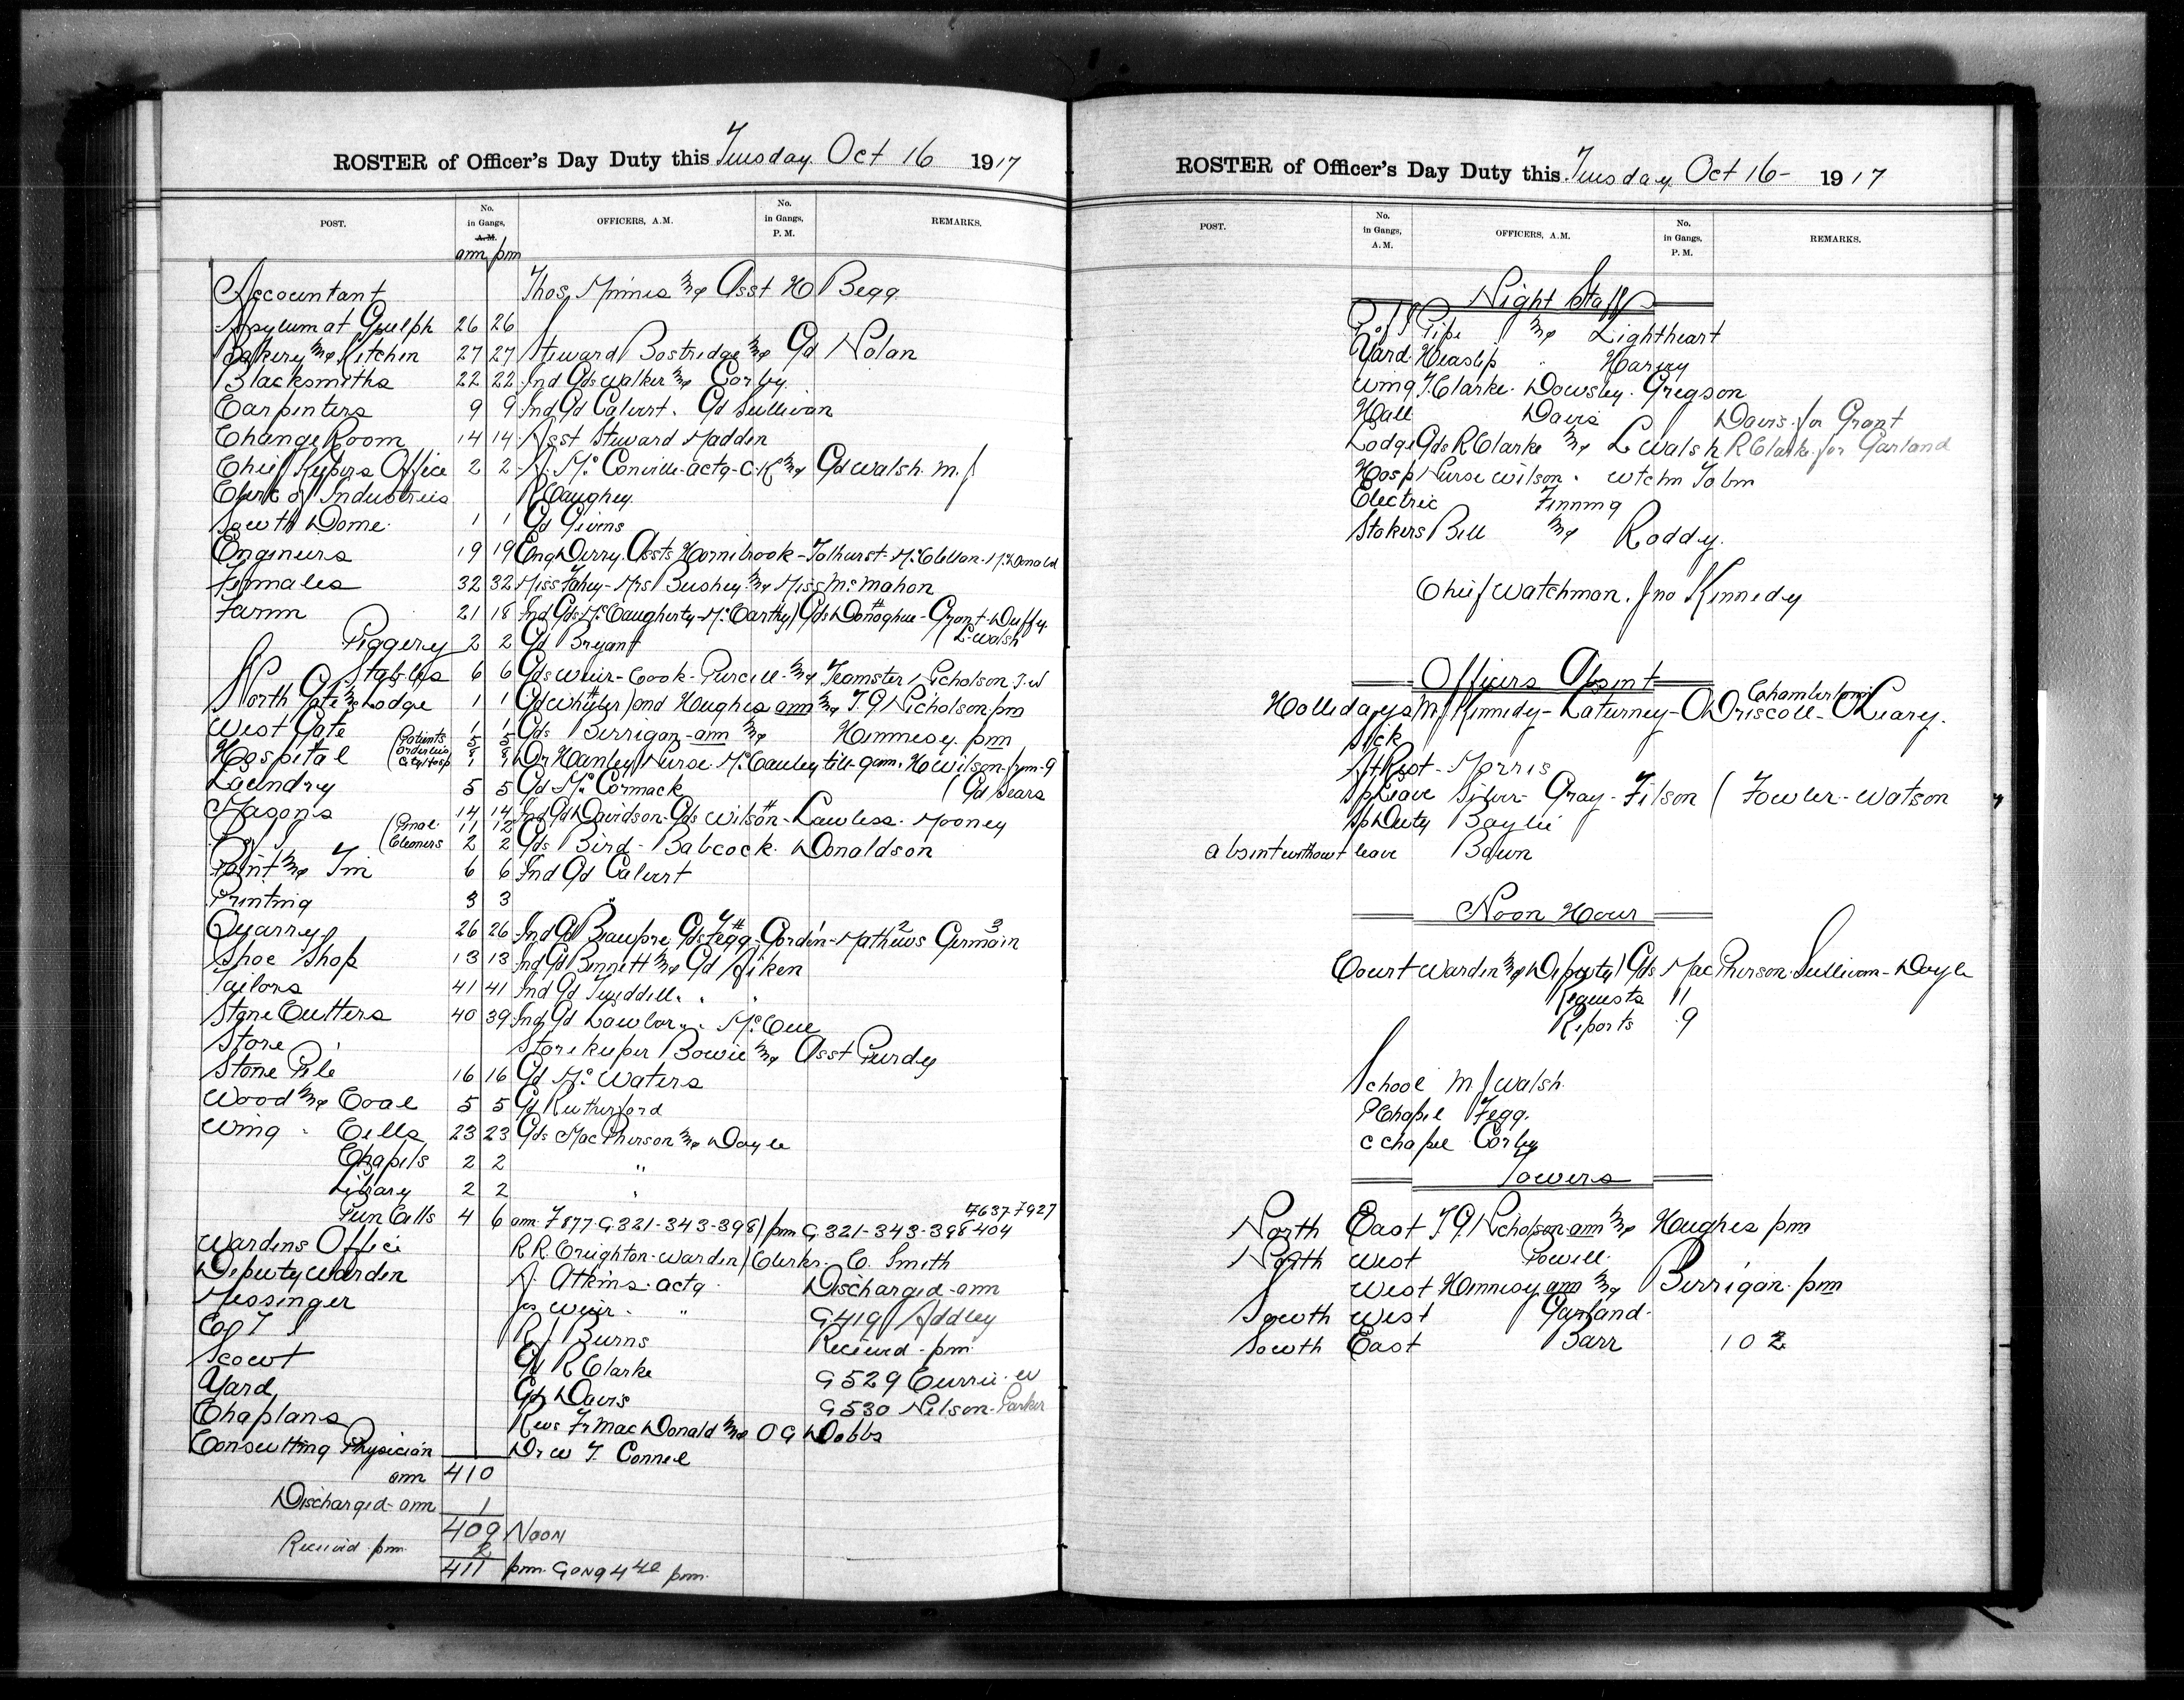 ROSTER of Officer's Day Duty this Tuesday Oct 16 1917
POST. No. in Gangs, A.M. OFFICERS, A.M. No. in Gangs, P.M. REMARKS.
am pm
Accountant Thos. Minnis & Asst H Begg
Asylum at Guelph 26 26
Bakery & Kitchen 27 27 Steward Bostridge & Gd Nolan
Blacksmiths 22 22 Ind Gds Walker & Corby
Carpenters 9 9 Ind Gd Calvert. Gd Sullivan
Change Room 14 14 Asst Steward Madden
Chief Keepers Office 2 2 A. McConville-actg-C-K & Gd Walsh. M.J
Clerk of Industries R Caughey
South Dome 1 1 Gd Givens
Engineers 19 19 Eng Derry. Assts Hornibrook-Tolhurst-McClellan-McDonald
Females 32 32 Miss Fahey-Mrs Bushey & Miss McMahon
Farm 21 18 Ind Gds McCaugherty-McCarthy) Gds Donoghue-Grant-Duffy
(L-Walsh
Piggery 2 2 Gd Bryant
Stables 6 6 Gds Weir-Cook-Purcell & Teamster Nicholson J.W
North Gate & Lodge 1 1 Gd Whyler) and Hughes am & T.G Nicholson pm
West Gate 1 1 Gds Berrigan-am & Hennesy. pm
Hospital (Patients 5 5
(Orderlies 8 8
(City Hosp 1 1 Dr Hanley) Nurse McCauley till 9am. H Wilson 1pm-9
Laundry 5 5 Gd McCormack (Gd Sears
Masons 14 14 Ind Gd Davidson-Gds Wilson-Lawless-Mooney
(Penal 11 12
(Cleaners 2 2 Gds Bird-Babcock. Donaldson
Paint & Tin 6 6 Ind Gd Calvert
Printing 3 3 "
Quarry 26 26 Ind Gd Beaupre Gds Fegg-Gordon-Mathews Germain
Shoe Shop 13 13 Ind Gd Bennett & Gd Aiken
Tailors 41 41 Ind Gd Tweddell " "
Stone Cutters 40 39 Ind Gd Lawlor " McCue
Store Storekeeper Bowie & Asst Purdy
Stone Pile 16 16 Gd McWaters
Wood & Coal 5 5 Gd Rutherford
Wing - Cells 23 23 Gds MacPherson & Doyle
Chapels 2 2 "
Library 2 2 "
7637-7927
Pun Cells 4 6 am. F877 G321-343-398) pm G321-343-398-404
Wardens Office R.R. Creighton-Warden) Clerks. C. Smith
Deputy Warden A. Atkins-actg. Discharged-am
Messinger Js Weir - " G419 Addley
C of T S R J Burns Received-pm
Scout Gd R Clarke G529 Currie. W
Yard Gd Davis G530 Nelson-Parker
Chaplans Revs Fr MacDonald & O G Dobbs
Consulting Physician Dr W T. Connell
am 410
Discharged-am 1
409 Noon
Received-pm 2
411 pm. Gong 4 40 pm.
ROSTER of Officer's Day Duty this Tuesday Oct 16- 1917
POST. No. in Gangs, A.M. OFFICERS, A.M. No. in Gangs, P.M. REMARKS.
Night Staff
P of S Pipe & Lightheart
Yard Heaslip " Harvey
Wing T. Clarke. Dowsley. Gregson
Hall Davis Davis-for Grant
Lodge Gds R Clarke & L Walsh R Clarke for Garland
Hosp Nurse Wilson. Wtchm Tobin
Electric Finning
Stokers Bell & Roddy.
Chief Watchman. Jno Kennedy
Officers Absent
Chamberlain
Hollidays M J Kennedy-Laturney-O'Driscoll-O'Leary.
Sick
At Rest-Morris
Sp Leave Silver-Gray-Filson (Fowler-Watson
Sp Duty Baylie
absent without leave Bawn
Noon Hour
Court Warden & Deputy) Gds MacPherson-Sullivan-Doyle
Requests 11
Reports 9
School M J Walsh.
P Chapel Fegg.
C Chapel Corby
Towers
North East T.G. Nicholson-am & Hughes pm
North West Powell.
West Hennesy am & Berrigan-pm
South West Garland-
South East Barr 102